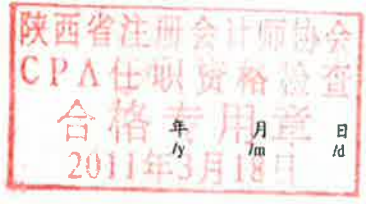 陕西省注册会计师协会
CPA任职资格检查
合格专用章
年 月 日
/y /m /d
2011年3月18日